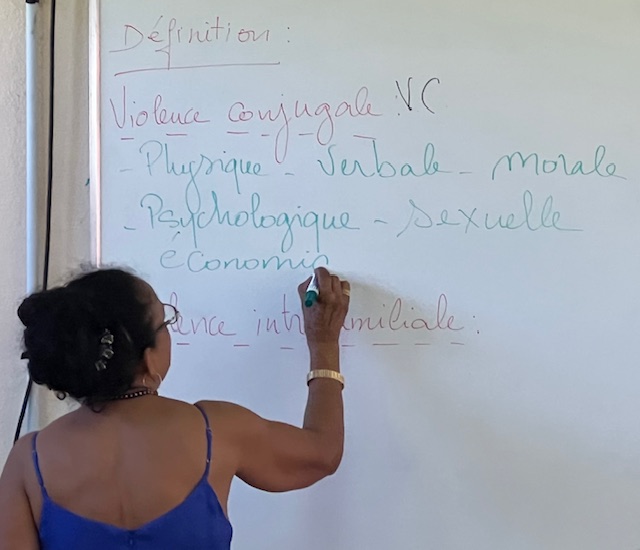 Définition :
Violence conjugale : VC
- Physique - Verbale - morale
- Psychologique - sexuelle
économi
intrafamiliale :